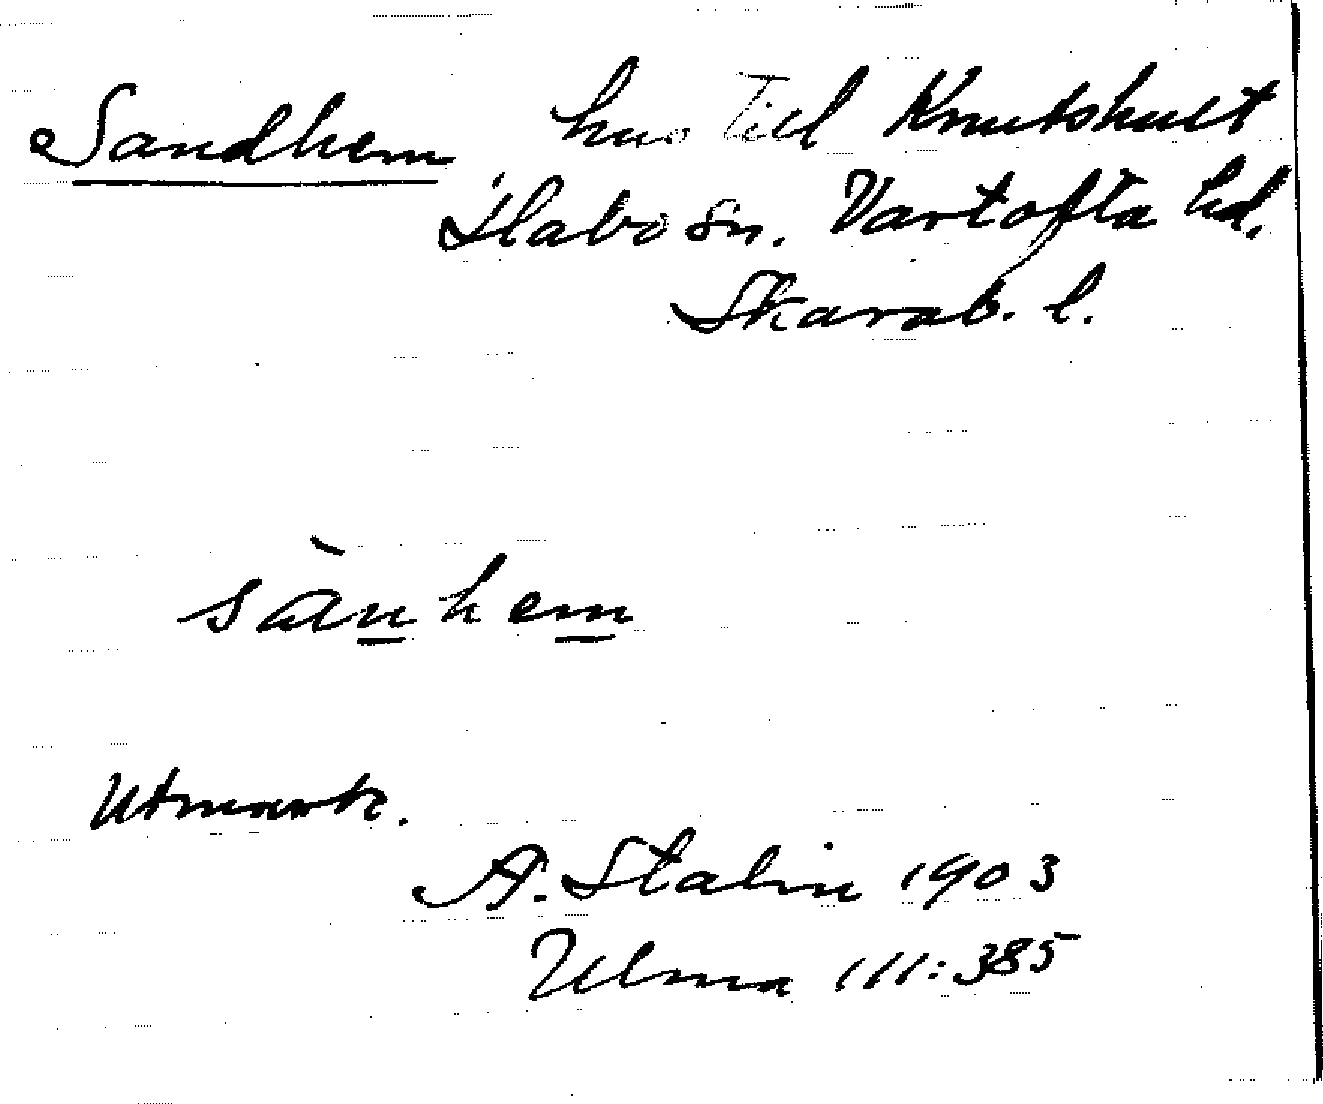 Sandhem hus till Knutshult
Habo sn. Vartofta hd.
Skarab. l.
sànhem
Utmark.
A. Stalin 1903
Ulma 111:385